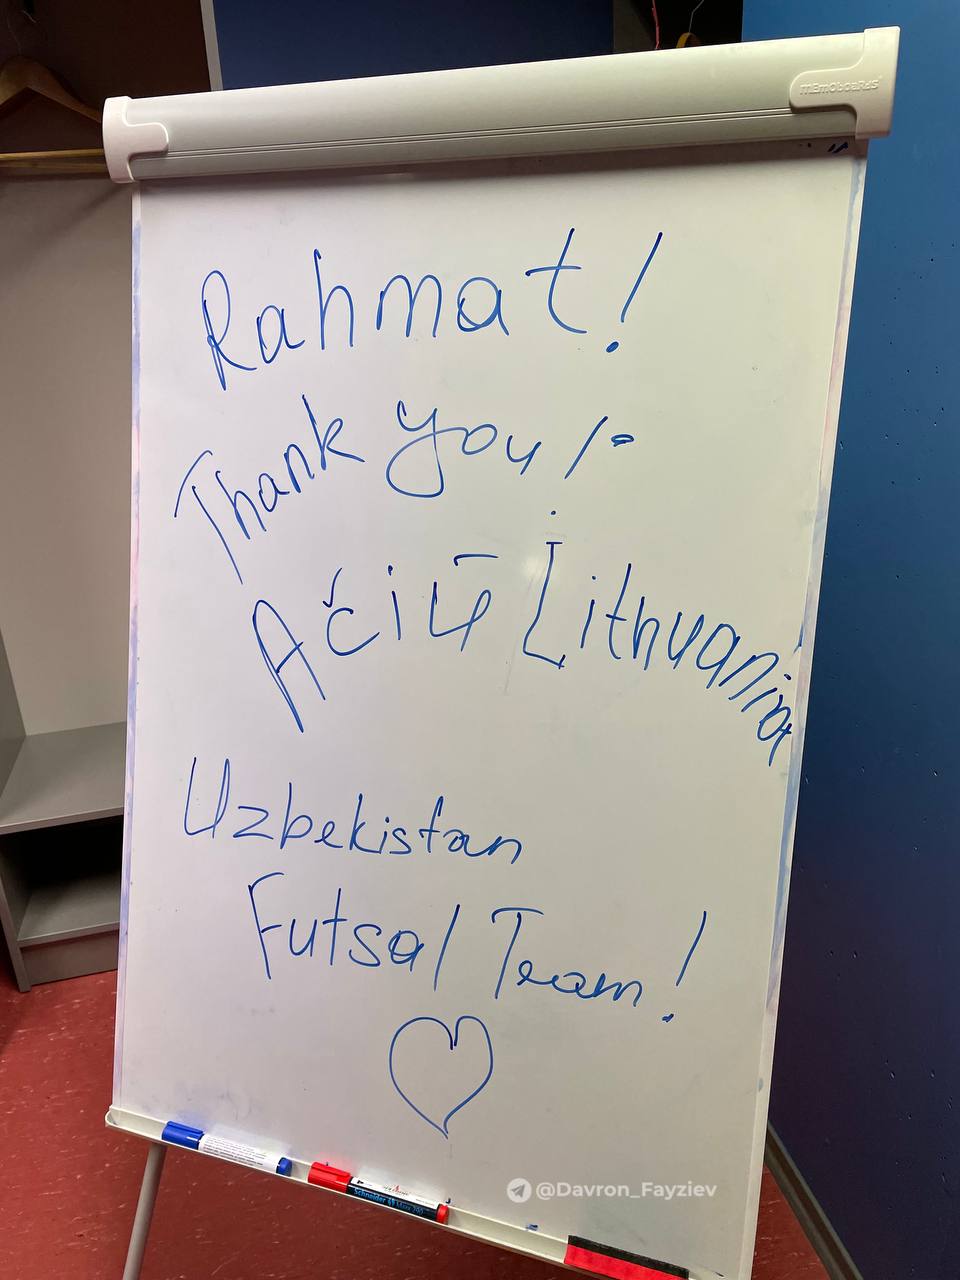 memoboards
Rahmat!
Thank you!
Ačiū Lithuania
Uzbekistan
Futsal Team!
Schneider Maxx 290
@Davron_Fayziev